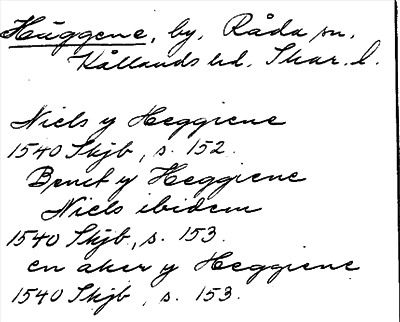 Häggene, by, Råda sn,
Kållands hd. Skar. l.
Niels y Heggiene
1540 Skjb, s. 152.
Benct y Heggiene
Niels ibidem
1540 Skjb, s. 153.
en aker y Heggiene
1540 Skjb, s. 153.